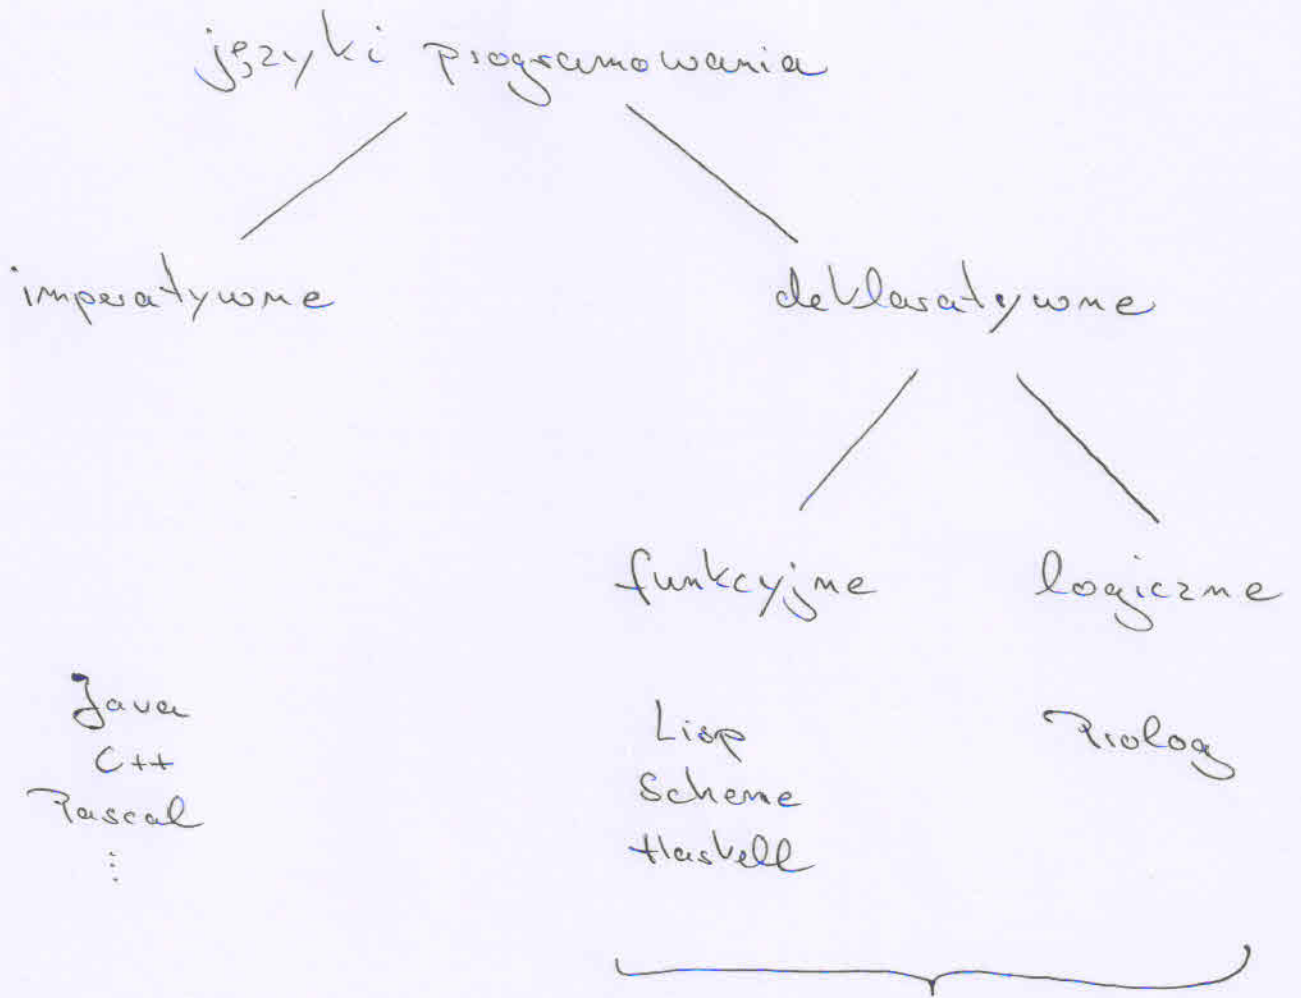 języki programowania
imperatywne deklaratywne
funkcyjne logiczne
Java
C++
Pascal
⋮
Lisp
Scheme
Haskell
Prolog